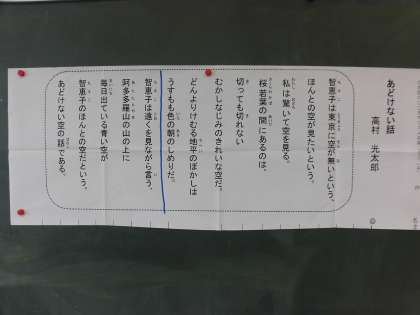 あどけない話
高村 光太郎
智恵子は東京に空が無いという。
ほんとの空が見たいという。
私は驚いて空を見る。
桜若葉の間にあるのは、
切っても切れない
むかしなじみのきれいな空だ。
どんよりけむる地平のぼかしは
うすもも色の朝のしめりだ。
智恵子は遠くを見ながら言う。
阿多多羅山の山の上に
毎日出ている青い空が
智恵子のほんとの空だという。
あどけない空の話である。